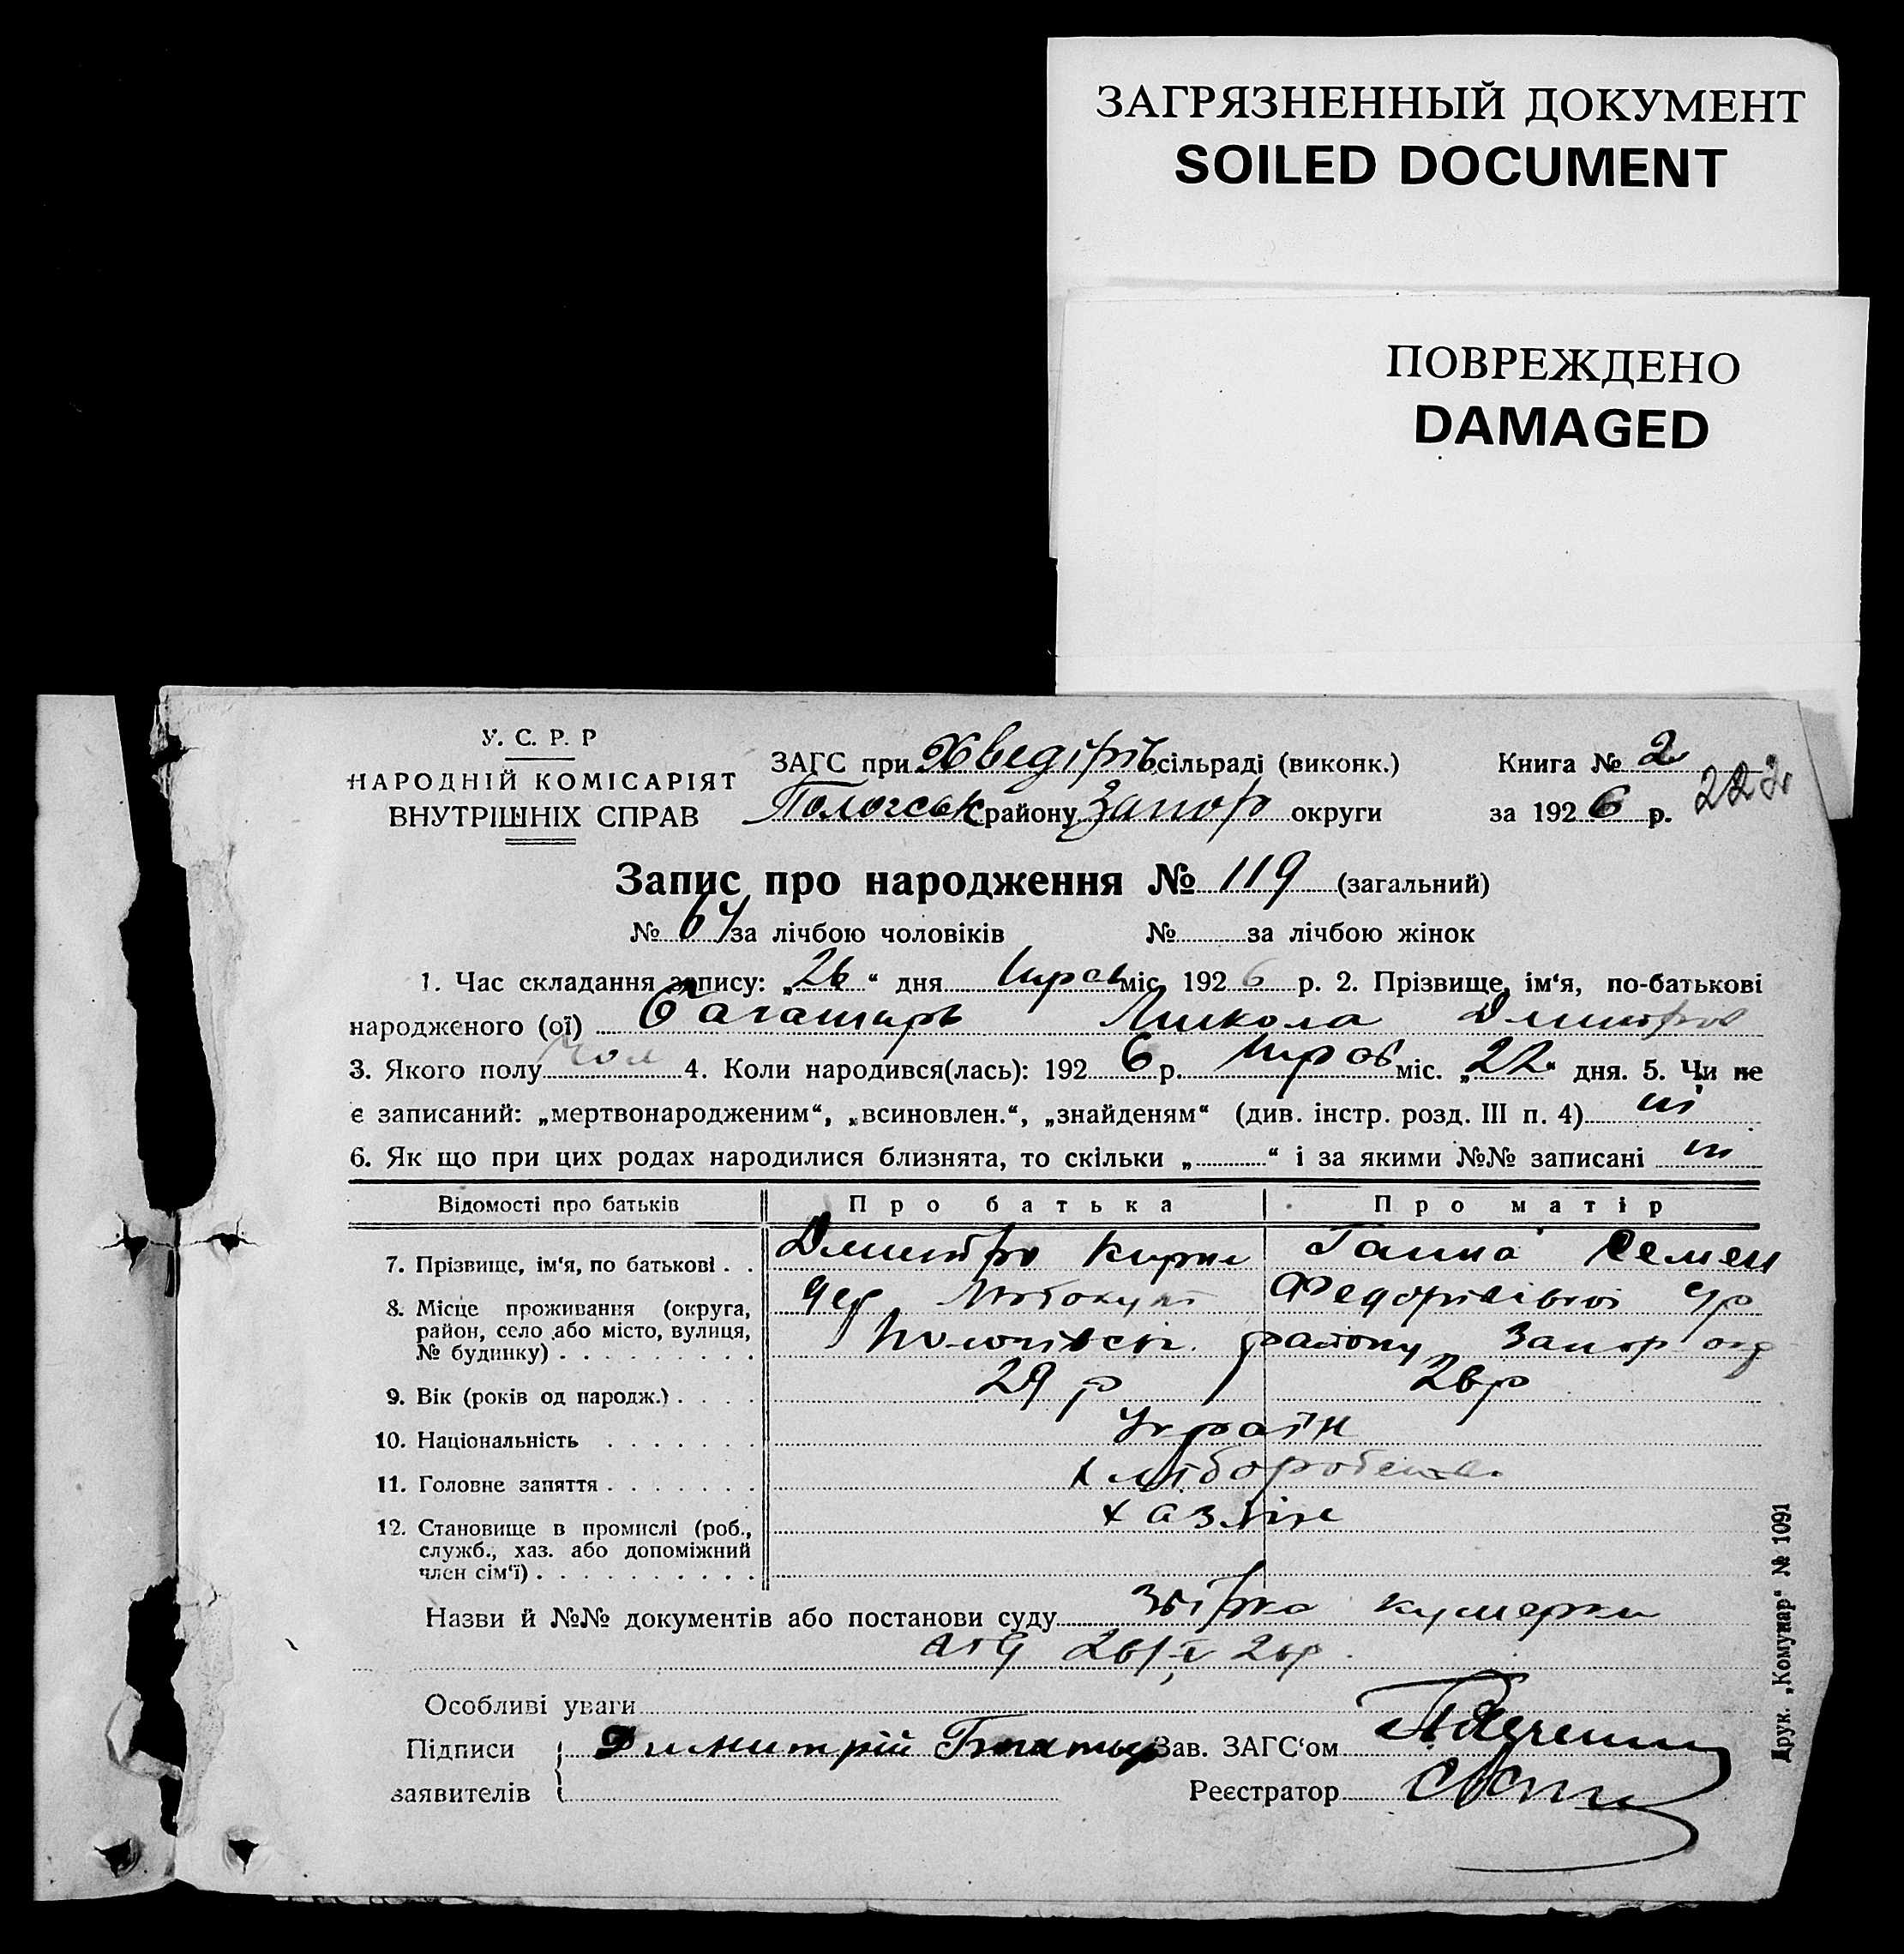 ЗАГРЯЗНЕННЫЙ ДОКУМЕНТ
SOILED DOCUMENT
ПОВРЕЖДЕНО
DAMAGED
У. С. Р. Р
НАРОДНІЙ КОМІСАРІЯТ
ВНУТРІШНІХ СПРАВ
ЗАГС при Хведірів сільраді (виконк.) Книга № 2
Пологськ району Запор округи за 1926 р.
Запис про народження № 119 (загальний)
№ 64 за лічбою чоловіків № за лічбою жінок
1. Час складання запису: „26“ дня трав міс. 1926 р. 2. Прізвище, ім'я, по-батькові
народженого (ої) Багатирь Микола Дмитров
3. Якого полу чол 4. Коли народився(лась): 1926 р. трав міс. „22“ дня. 5. Чи не
є записаний: „мертвонародженим“, „всиновлен.“, „знайденям“ (див. інстр. розд. III п. 4) ні
6. Як що при цих родах народилися близнята, то скільки „“ і за якими №№ записані ні
Відомості про батьків Про батька Про матір
7. Прізвище, ім'я, по батькові . . Дмитро Кирил Ганна Семен
8. Місце проживання (округа, Федорівської с/р
район, село або місто, вулиця, району Запор окр
№ будинку) . . . . . . . . .
9. Вік (років од народж.) . . . . 29 р 26 р
10. Національність . . . . . . . Україн
11. Головне заняття . . . . . . . хлібороб
12. Становище в промислі (роб., хазяїн
служб., хаз. або допоміжний
член сім'ї) . . . . . . . . . .
Назви й №№ документів або постанови суду
26/V 26р.
Особливі уваги
Підписи Димитрій Зав. ЗАГС'ом
заявителів Реєстратор
Друк. „Комунар“ № 1091